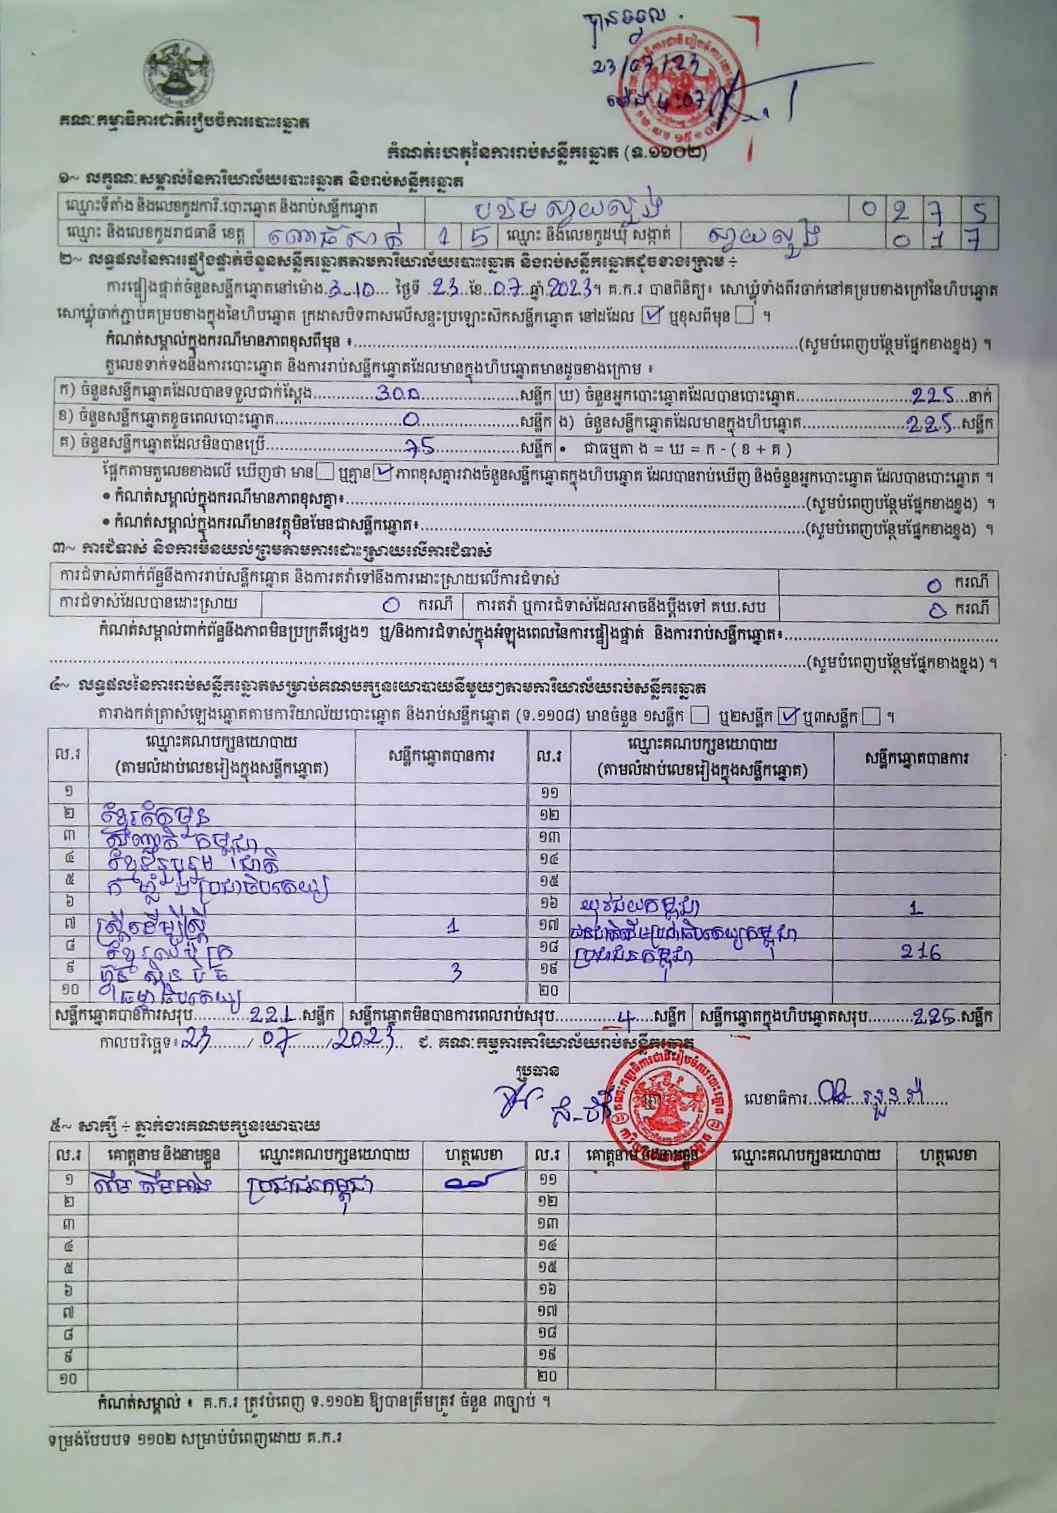 បានទទួល
23/07/23
ម៉ោង 4:07
គណៈកម្មាធិការជាតិរៀបចំការបោះឆ្នោត
កំណត់ហេតុនៃការរាប់សន្លឹកឆ្នោត (ទ.១១០២)
១~ លក្ខណៈសម្គាល់នៃការិយាល័យបោះឆ្នោត និងរាប់សន្លឹកឆ្នោត
ឈ្មោះទីតាំង និងលេខកូដការិ.បោះឆ្នោត និងរាប់សន្លឹកឆ្នោត បឋម ស្វាយលួង 0 2 7 5
ឈ្មោះ និងលេខកូដរាជធានី ខេត្ត ពោធិ៍សាត់ 1 5 ឈ្មោះ និងលេខកូដឃុំ សង្កាត់ ស្វាយលួង 0 1 7
២~ លទ្ធផលនៃការផ្ទៀងផ្ទាត់ចំនួនសន្លឹកឆ្នោតតាមការិយាល័យបោះឆ្នោត និងរាប់សន្លឹកឆ្នោតដូចខាងក្រោម ÷
ការផ្ទៀងផ្ទាត់ចំនួនសន្លឹកឆ្នោតនៅម៉ោង.3-10... ថ្ងៃទី .23..ខែ..07..ឆ្នាំ.2023។ គ.ក.រ បានពិនិត្យ៖ សោឃ្លុំទាំងពីរចាក់នៅគម្របខាងក្រៅនៃហិបឆ្នោត
សោឃ្លុំចាក់ភ្ជាប់គម្របខាងក្នុងនៃហិបឆ្នោត ក្រដាសបិទពាសលើសន្ទះប្រឡោះស៊កសន្លឹកឆ្នោត នៅដដែល ☑ ឬខុសពីមុន ☐ ។
កំណត់សម្គាល់ក្នុងករណីមានភាពខុសពីមុន ៖...(សូមបំពេញបន្ថែមផ្នែកខាងខ្នង) ។
តួលេខទាក់ទងនឹងការបោះឆ្នោត និងការរាប់សន្លឹកឆ្នោតដែលមានក្នុងហិបឆ្នោតមានដូចខាងក្រោម ៖
ក) ចំនួនសន្លឹកឆ្នោតដែលបានទទួលជាក់ស្តែង...300...សន្លឹក ឃ) ចំនួនអ្នកបោះឆ្នោតដែលបានបោះឆ្នោត...225...នាក់
ខ) ចំនួនសន្លឹកឆ្នោតខូចពេលបោះឆ្នោត...0...សន្លឹក ង) ចំនួនសន្លឹកឆ្នោតដែលមានក្នុងហិបឆ្នោត...225..សន្លឹក
គ) ចំនួនសន្លឹកឆ្នោតដែលមិនបានប្រើ...75...សន្លឹក • ជាធម្មតា ង = ឃ = ក - ( ខ + គ )
ផ្អែកតាមតួលេខខាងលើ ឃើញថា មាន ☐ ឬគ្មាន ☑ ភាពខុសគ្នារវាងចំនួនសន្លឹកឆ្នោតក្នុងហិបឆ្នោត ដែលបានរាប់ឃើញ និងចំនួនអ្នកបោះឆ្នោត ដែលបានបោះឆ្នោត ។
• កំណត់សម្គាល់ក្នុងករណីមានភាពខុសគ្នា៖...(សូមបំពេញបន្ថែមផ្នែកខាងខ្នង) ។
• កំណត់សម្គាល់ក្នុងករណីមានវត្ថុមិនមែនជាសន្លឹកឆ្នោត៖...(សូមបំពេញបន្ថែមផ្នែកខាងខ្នង) ។
៣~ ការជំទាស់ និងការមិនយល់ព្រមតាមការដោះស្រាយលើការជំទាស់
ការជំទាស់ពាក់ព័ន្ធនឹងការរាប់សន្លឹកឆ្នោត និងការតវ៉ាទៅនឹងការដោះស្រាយលើការជំទាស់ 0 ករណី
ការជំទាស់ដែលបានដោះស្រាយ 0 ករណី ការតវ៉ា ឬការជំទាស់ដែលអាចនឹងប្តឹងទៅ គឃ.សប 0 ករណី
កំណត់សម្គាល់ពាក់ព័ន្ធនឹងភាពមិនប្រក្រតីផ្សេងៗ ឬ/និងការជំទាស់ក្នុងអំឡុងពេលនៃការផ្ទៀងផ្ទាត់ និងការរាប់សន្លឹកឆ្នោត៖...
...(សូមបំពេញបន្ថែមផ្នែកខាងខ្នង) ។
៤~ លទ្ធផលនៃការរាប់សន្លឹកឆ្នោតសម្រាប់គណបក្សនយោបាយនីមួយៗតាមការិយាល័យរាប់សន្លឹកឆ្នោត
តារាងកត់ត្រាសំឡេងឆ្នោតតាមការិយាល័យបោះឆ្នោត និងរាប់សន្លឹកឆ្នោត (ទ.១១០៨) មានចំនួន ១សន្លឹក ☐ ឬ២សន្លឹក ☑ ឬ៣សន្លឹក ☐ ។
ល.រ ឈ្មោះគណបក្សនយោបាយ (តាមលំដាប់លេខរៀងក្នុងសន្លឹកឆ្នោត) សន្លឹកឆ្នោតបានការ ល.រ ឈ្មោះគណបក្សនយោបាយ (តាមលំដាប់លេខរៀងក្នុងសន្លឹកឆ្នោត) សន្លឹកឆ្នោតបានការ
១ ១១
២ ខ្មែរតែមួយ ១២
៣ សញ្ជាតិកម្ពុជា ១៣
៤ ខ្មែររួបរួមជាតិ ១៤
៥ កម្លាំងប្រជាធិបតេយ្យ ១៥
៦ ១៦ យុវជនកម្ពុជា 1
៧ ស្ត្រីដើម្បីស្ត្រី 1 ១៧ ជនជាតិដើមប្រជាធិបតេយ្យកម្ពុជា
៨ ១៨ ប្រជាជនកម្ពុជា 216
៩ ហ៊្វុនស៊ិនប៉ិច 3 ១៩
១០ ធម្មាធិបតេយ្យ ២០
សន្លឹកឆ្នោតបានការសរុប...221.សន្លឹក សន្លឹកឆ្នោតមិនបានការពេលរាប់សរុប...4...សន្លឹក សន្លឹកឆ្នោតក្នុងហិបឆ្នោតសរុប...225.សន្លឹក
កាលបរិច្ឆេទ៖ 23/07/2023 ជ. គណៈកម្មការការិយាល័យរាប់សន្លឹកឆ្នោត
ប្រធាន
លេខាធិការ
៥~ សាក្សី ÷ ភ្នាក់ងារគណបក្សនយោបាយ
ល.រ គោត្តនាម និងនាមខ្លួន ឈ្មោះគណបក្សនយោបាយ ហត្ថលេខា ល.រ គោត្តនាម និងនាមខ្លួន ឈ្មោះគណបក្សនយោបាយ ហត្ថលេខា
១ ប្រជាជនកម្ពុជា ១១
២ ១២
៣ ១៣
៤ ១៤
៥ ១៥
៦ ១៦
៧ ១៧
៨ ១៨
៩ ១៩
១០ ២០
កំណត់សម្គាល់ ៖ គ.ក.រ ត្រូវបំពេញ ទ.១១០២ ឱ្យបានត្រឹមត្រូវ ចំនួន ៣ច្បាប់ ។
ទម្រង់បែបបទ ១១០២ សម្រាប់បំពេញដោយ គ.ក.រ